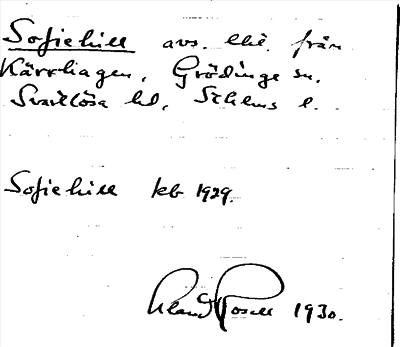 Sofiehill avs. lht. från
Kärrhagen, Grödinge sn,
Svartlösa hd, Sthlms l.
Sofiehill kb 1929.
Roséll 1930.